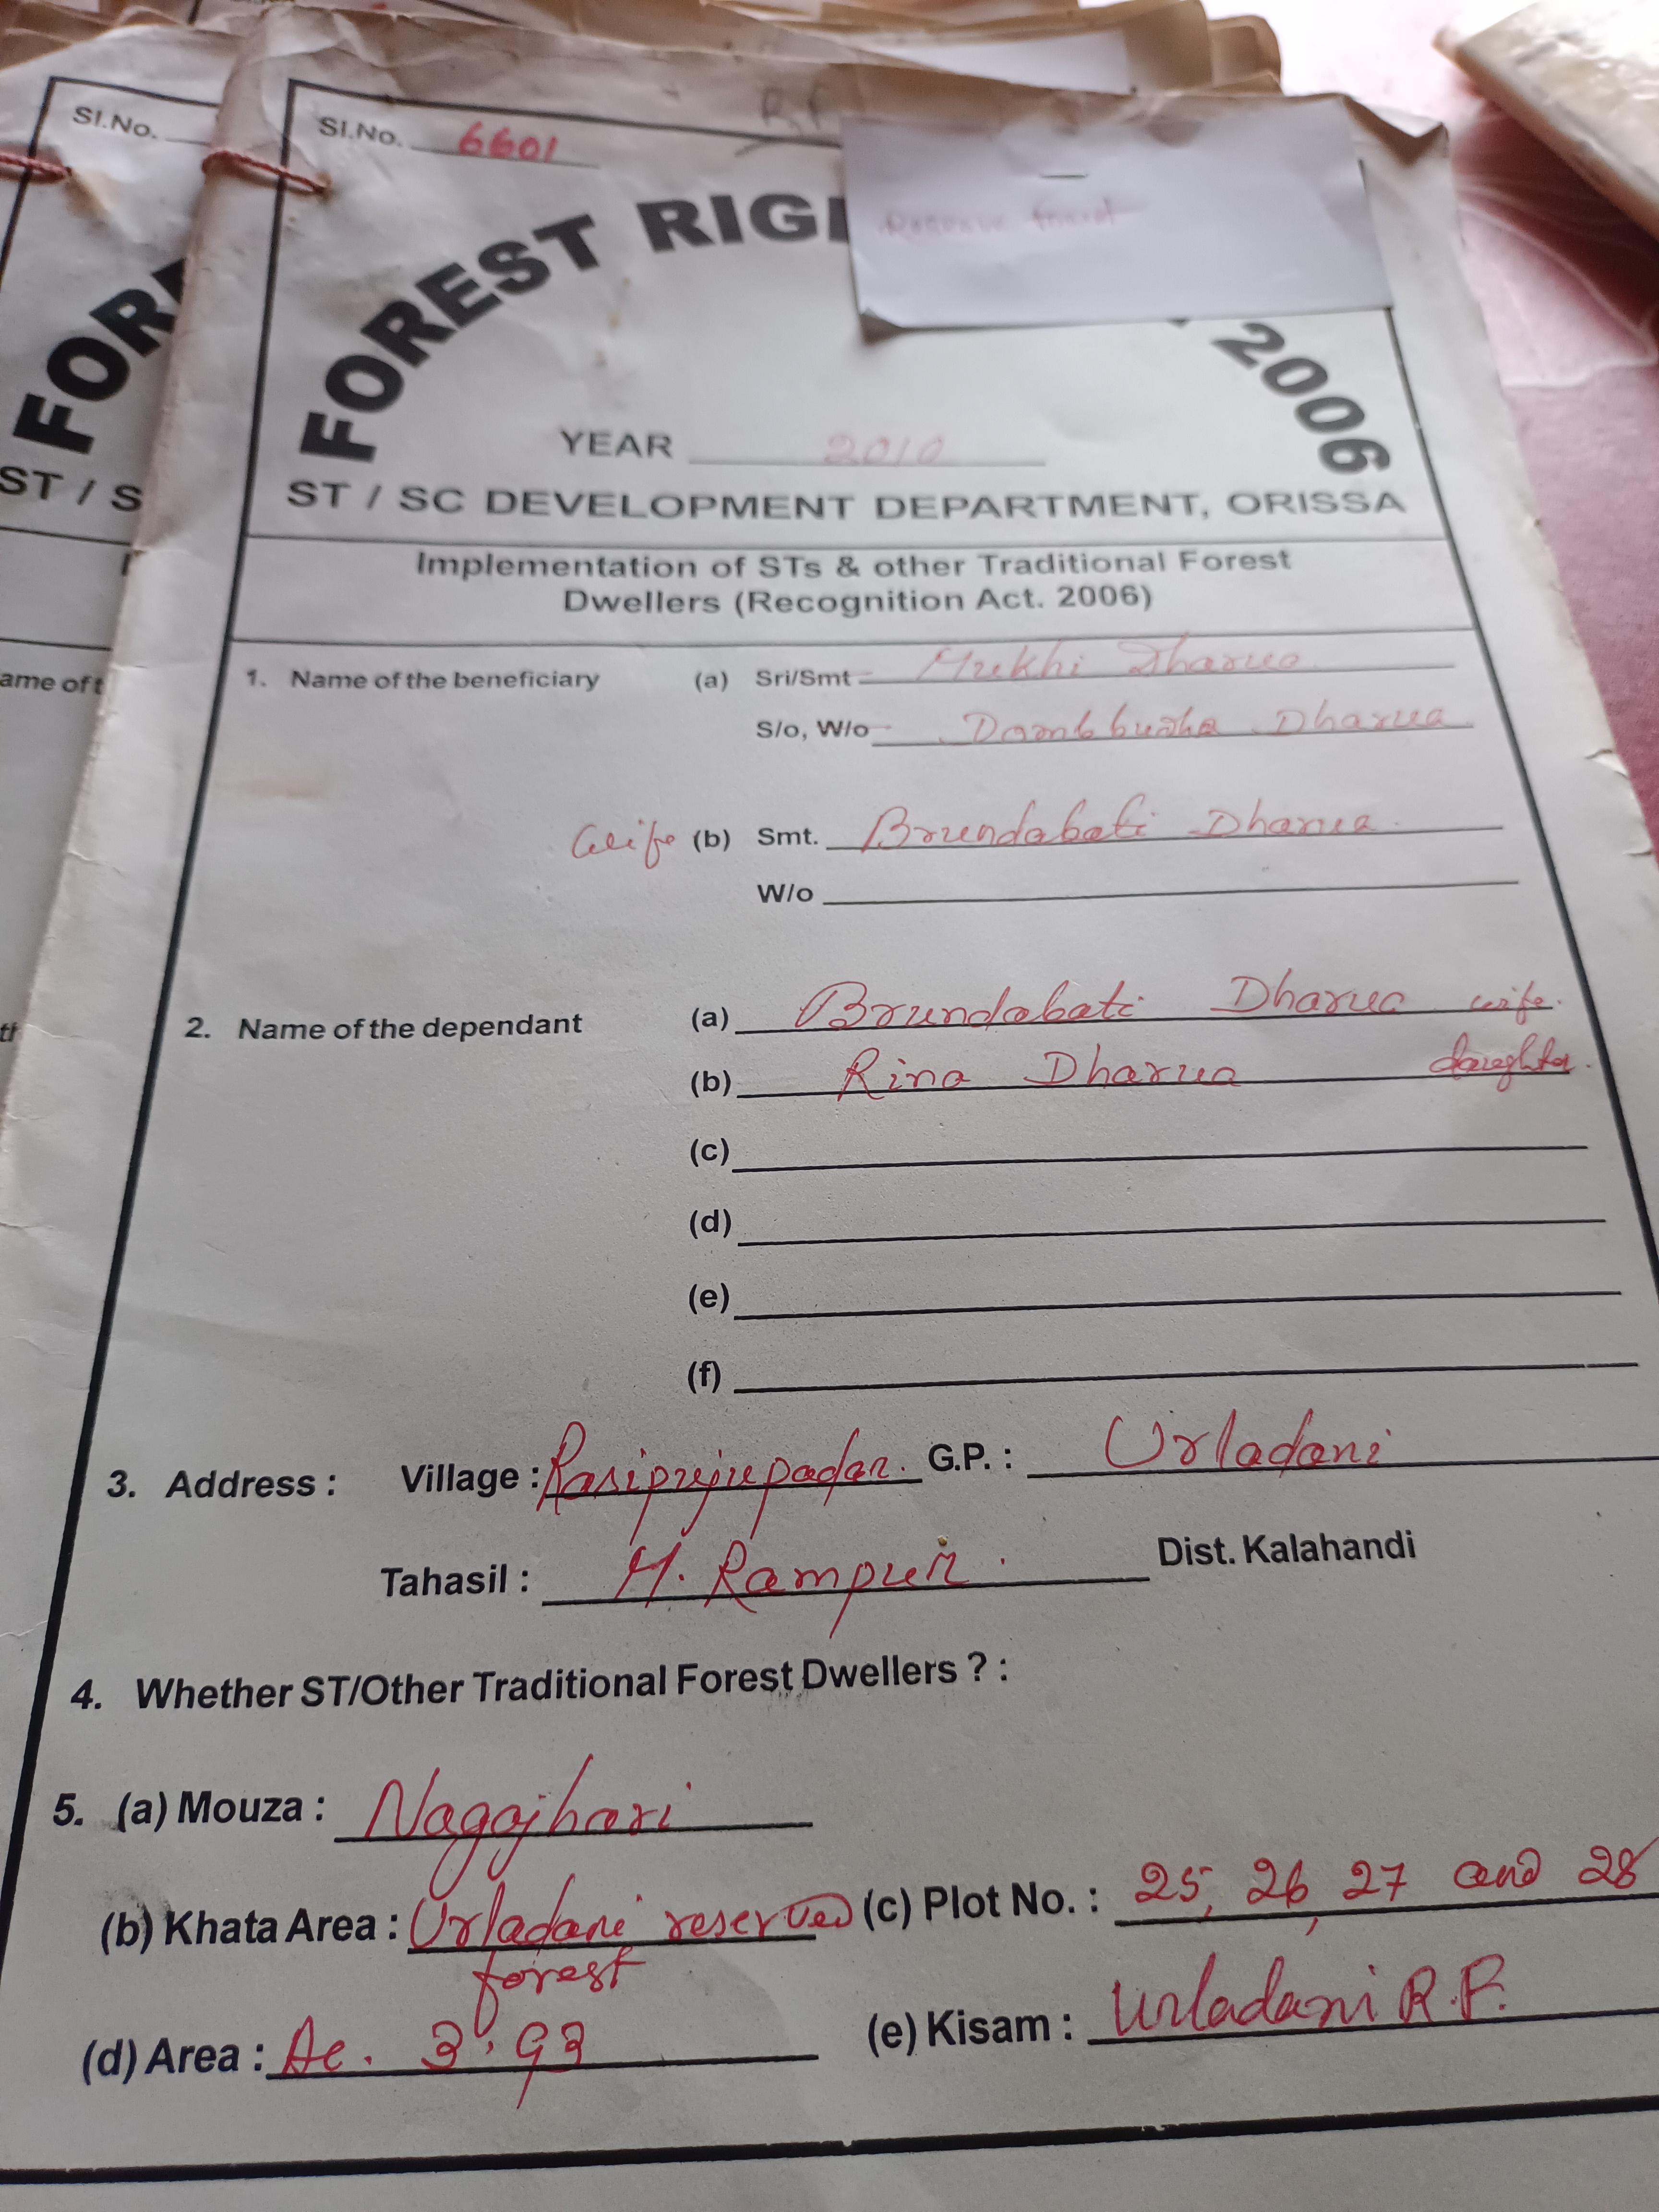 Sl.No. 6601
R.F
Reserve forest
FOREST RIG
2006
YEAR 2010
ST / SC DEVELOPMENT DEPARTMENT, ORISSA
Implementation of STs & other Traditional Forest
Dwellers (Recognition Act. 2006)
1. Name of the beneficiary (a) Sri/Smt Mukhi Dharua
S/o, W/o Dambbudha Dharua
wife (b) Smt. Brundabati Dharua
W/o
2. Name of the dependant (a) Brundabati Dharua wife.
(b) Rina Dharua daughter.
(c)
(d)
(e)
(f)
3. Address : Village : G.P. : Urladani
Tahasil : M. Rampur. Dist. Kalahandi
4. Whether ST/Other Traditional Forest Dwellers ? :
5. (a) Mouza : Nagajhari
(b) Khata Area : Urladani reserved forest (c) Plot No. : 25, 26, 27 and 28
(d) Area : Ac. 3.93 (e) Kisam : Urladani R.F.
Sl.No.
FOR
ST / S
ame of t
th